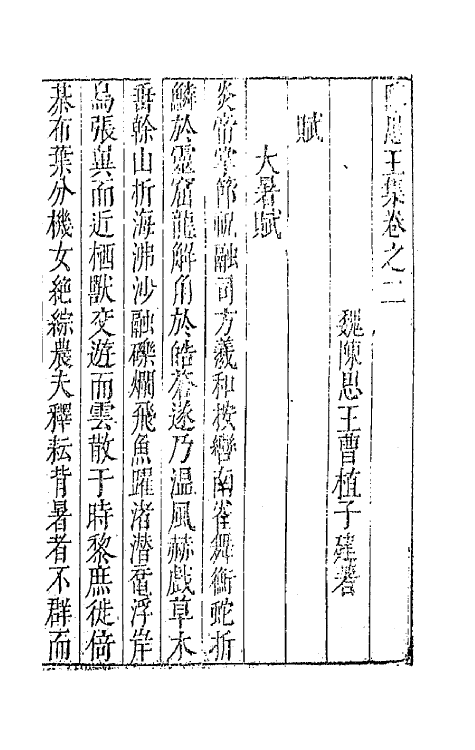 陳思王集卷之二
魏陳思王曹植子建著
賦
大暑賦
炎帝掌節祝融司方羲和按轡南雀舞衡蛇折
鱗於靈窟龍解角於皓蒼遂乃溫風赫戲草木
垂幹山折海沸沙融礫爛飛魚躍渚潛黿浮岸
鳥張翼而近栖獸交遊而雲散于時黎庶徙倚
棊布葉分機女絶綜農夫釋耘背暑者不群而